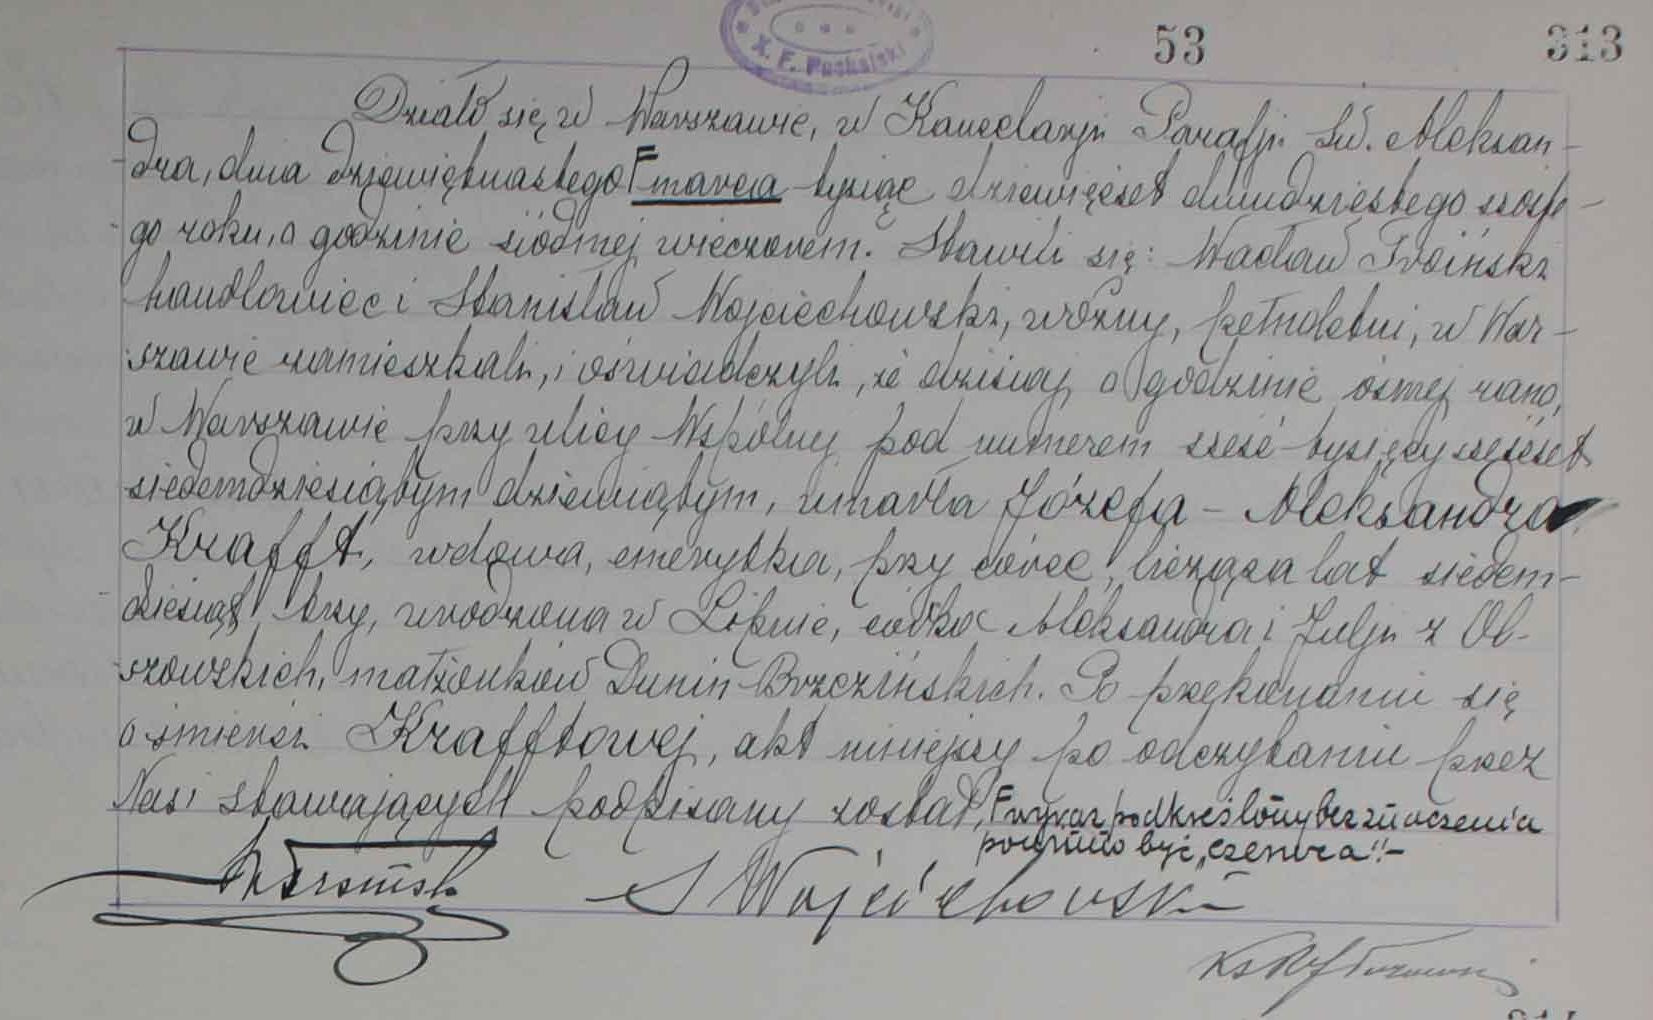 X. F. Puchalski
53 313
Działo się w Warszawie, w Kancelarji Parafji Św. Aleksan-
dra, dnia dziewiętnastego marca tysiąc dziewięćset dwudziestego szóste-
go roku, o godzinie siódmej wieczorem. Stawili się: Wacław Troiński
handlowiec i Stanisław Wojciechowski, woźny, pełnoletni, w War-
szawie zamieszkali, i oświadczyli, że dzisiaj o godzinie ósmej rano,
w Warszawie przy ulicy Wspólnej pod numerem sześć tysięcy sześćset
siedemdziesiątym dziewiątym, umarła Józefa-Aleksandra
Krafft, wdowa, emerytka, przy córce, licząca lat siedem-
dziesiąt trzy, urodzona w Lipnie, córka Aleksandra i Julji z Ol-
szowskich, małżonków Dunin-Brzezińskich. Po przekonaniu się
o śmierci Krafftowej, akt niniejszy po odczytaniu przez
Nas i stawających podpisany został, wyraz podkreślony bez znaczenia
powinno być "czerwca".-
S Wojciechowski